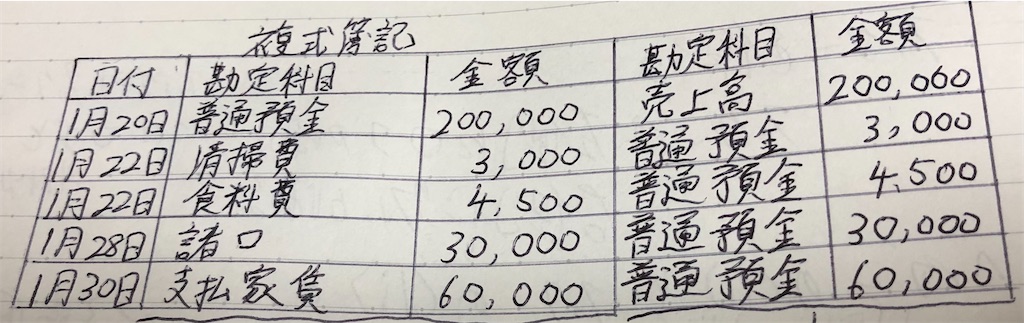 複式簿記
日付 勘定科目 金額 勘定科目 金額
1月20日 普通預金 200,000 売上高 200,000
1月22日 清掃費 3,000 普通預金 3,000
1月22日 食料費 4,500 普通預金 4,500
1月28日 諸口 30,000 普通預金 30,000
1月30日 支払家賃 60,000 普通預金 60,000